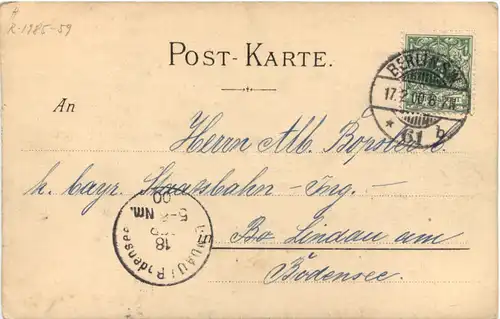 R-1985-59
POST-KARTE.
BERLIN S.W.
17.2.00.6-7N.
* 61 b
An
Herrn Alb.
k. bayr. Staatsbahn-Ing.-
in Lindau am
Bodensee.
LINDAU i. Bodensee
18
5-6 Nm.
00